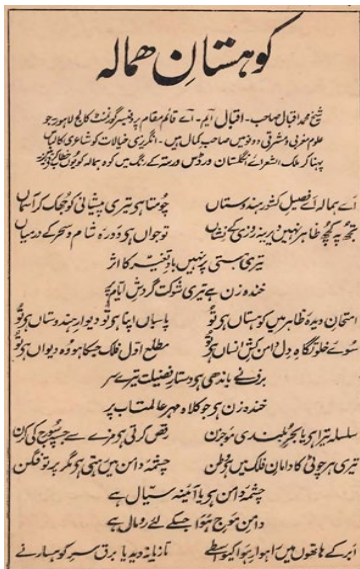 کوہستانِ ھمالہ
شیخ محمد اقبال صاحب۔ اقبال ایم۔ اے قائم مقام پروفیسر گورنمنٹ کالج لاہور جو
علوم مغربی و مشرقی دونوں میں صاحب کمال ہیں۔ انگریزی خیالات کو شاعری کا لباس
پہنا کر ملک الشعراے انگلستان ورڈس ورتھ کے رنگ میں کوہ ہمالہ کو یوں خطاب کرتے ہیں
اے ہمالہ اے فصیل کشور ہندوستاں چومتا ہو تیری پیشانی کو جھک کر آسماں
تجھ پہ کچھ ظاہر نہیں دیرینہ روزی کے نشاں تو جواں ہو دورہ شام و سحر کے درمیاں
تیری ہستی پر نہیں باد تغیر کا اثر
خندہ زن ہے تیری شوکت گردش ایام پر
امتحان دیدہ ظاہر میں کوہستاں ہو تو پاسباں اپنا ہو تو دیوار ہندوستاں ہو تو
سوے خلوتگاہ دل دامن کش انساں ہو تو مطلع اول فلک جسکا ہو وہ دیواں ہو تو
برف نے باندھی ہو دستار فضیلت تیرے سر
خندہ زن ہو جو کلاہ مہر عالمتاب پر
سلسلہ تیرا ہو یا بحر بلندی موجزن رقص کرتی ہو مزے سے جسپہ سورج کی کرن
تیری ہر چوٹی کا دامان فلک میں ہو وطن چشمۂ دامن میں رہتی ہو مگر پرتو فگن
چشمۂ دامن ہو یا آئینہ سیال ہے
دامن موج ہوا جسکے لئے رومال ہے
ابر کے ہاتھوں میں رہوار ہوا کیواسطے تازیانہ دیدیا برق سر کوہسار نے